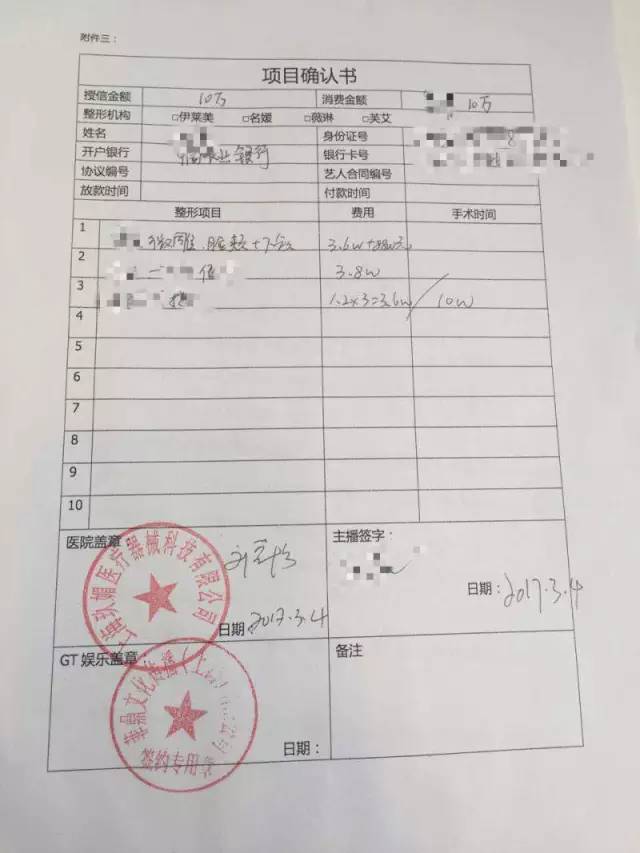 附件三：
项目确认书
授信金额 10万 消费金额 10万
整形机构 □伊莱美 □名媛 □薇琳 □芙艾
姓名 身份证号
开户银行 银行 银行卡号
协议编号 艺人合同编号
放款时间 付款时间
整形项目 费用 手术时间
1 微雕 3.6w
2 3.8w
3 1.2×3=3.6w 10w
4
5
6
7
8
9
10
医院盖章： 主播签字：
医疗器械科技有限公司
日期：2017.3.4 日期：2017.3.4
GT 娱乐盖章 备注
华鼎文化传播（上
签约专用章
日期：